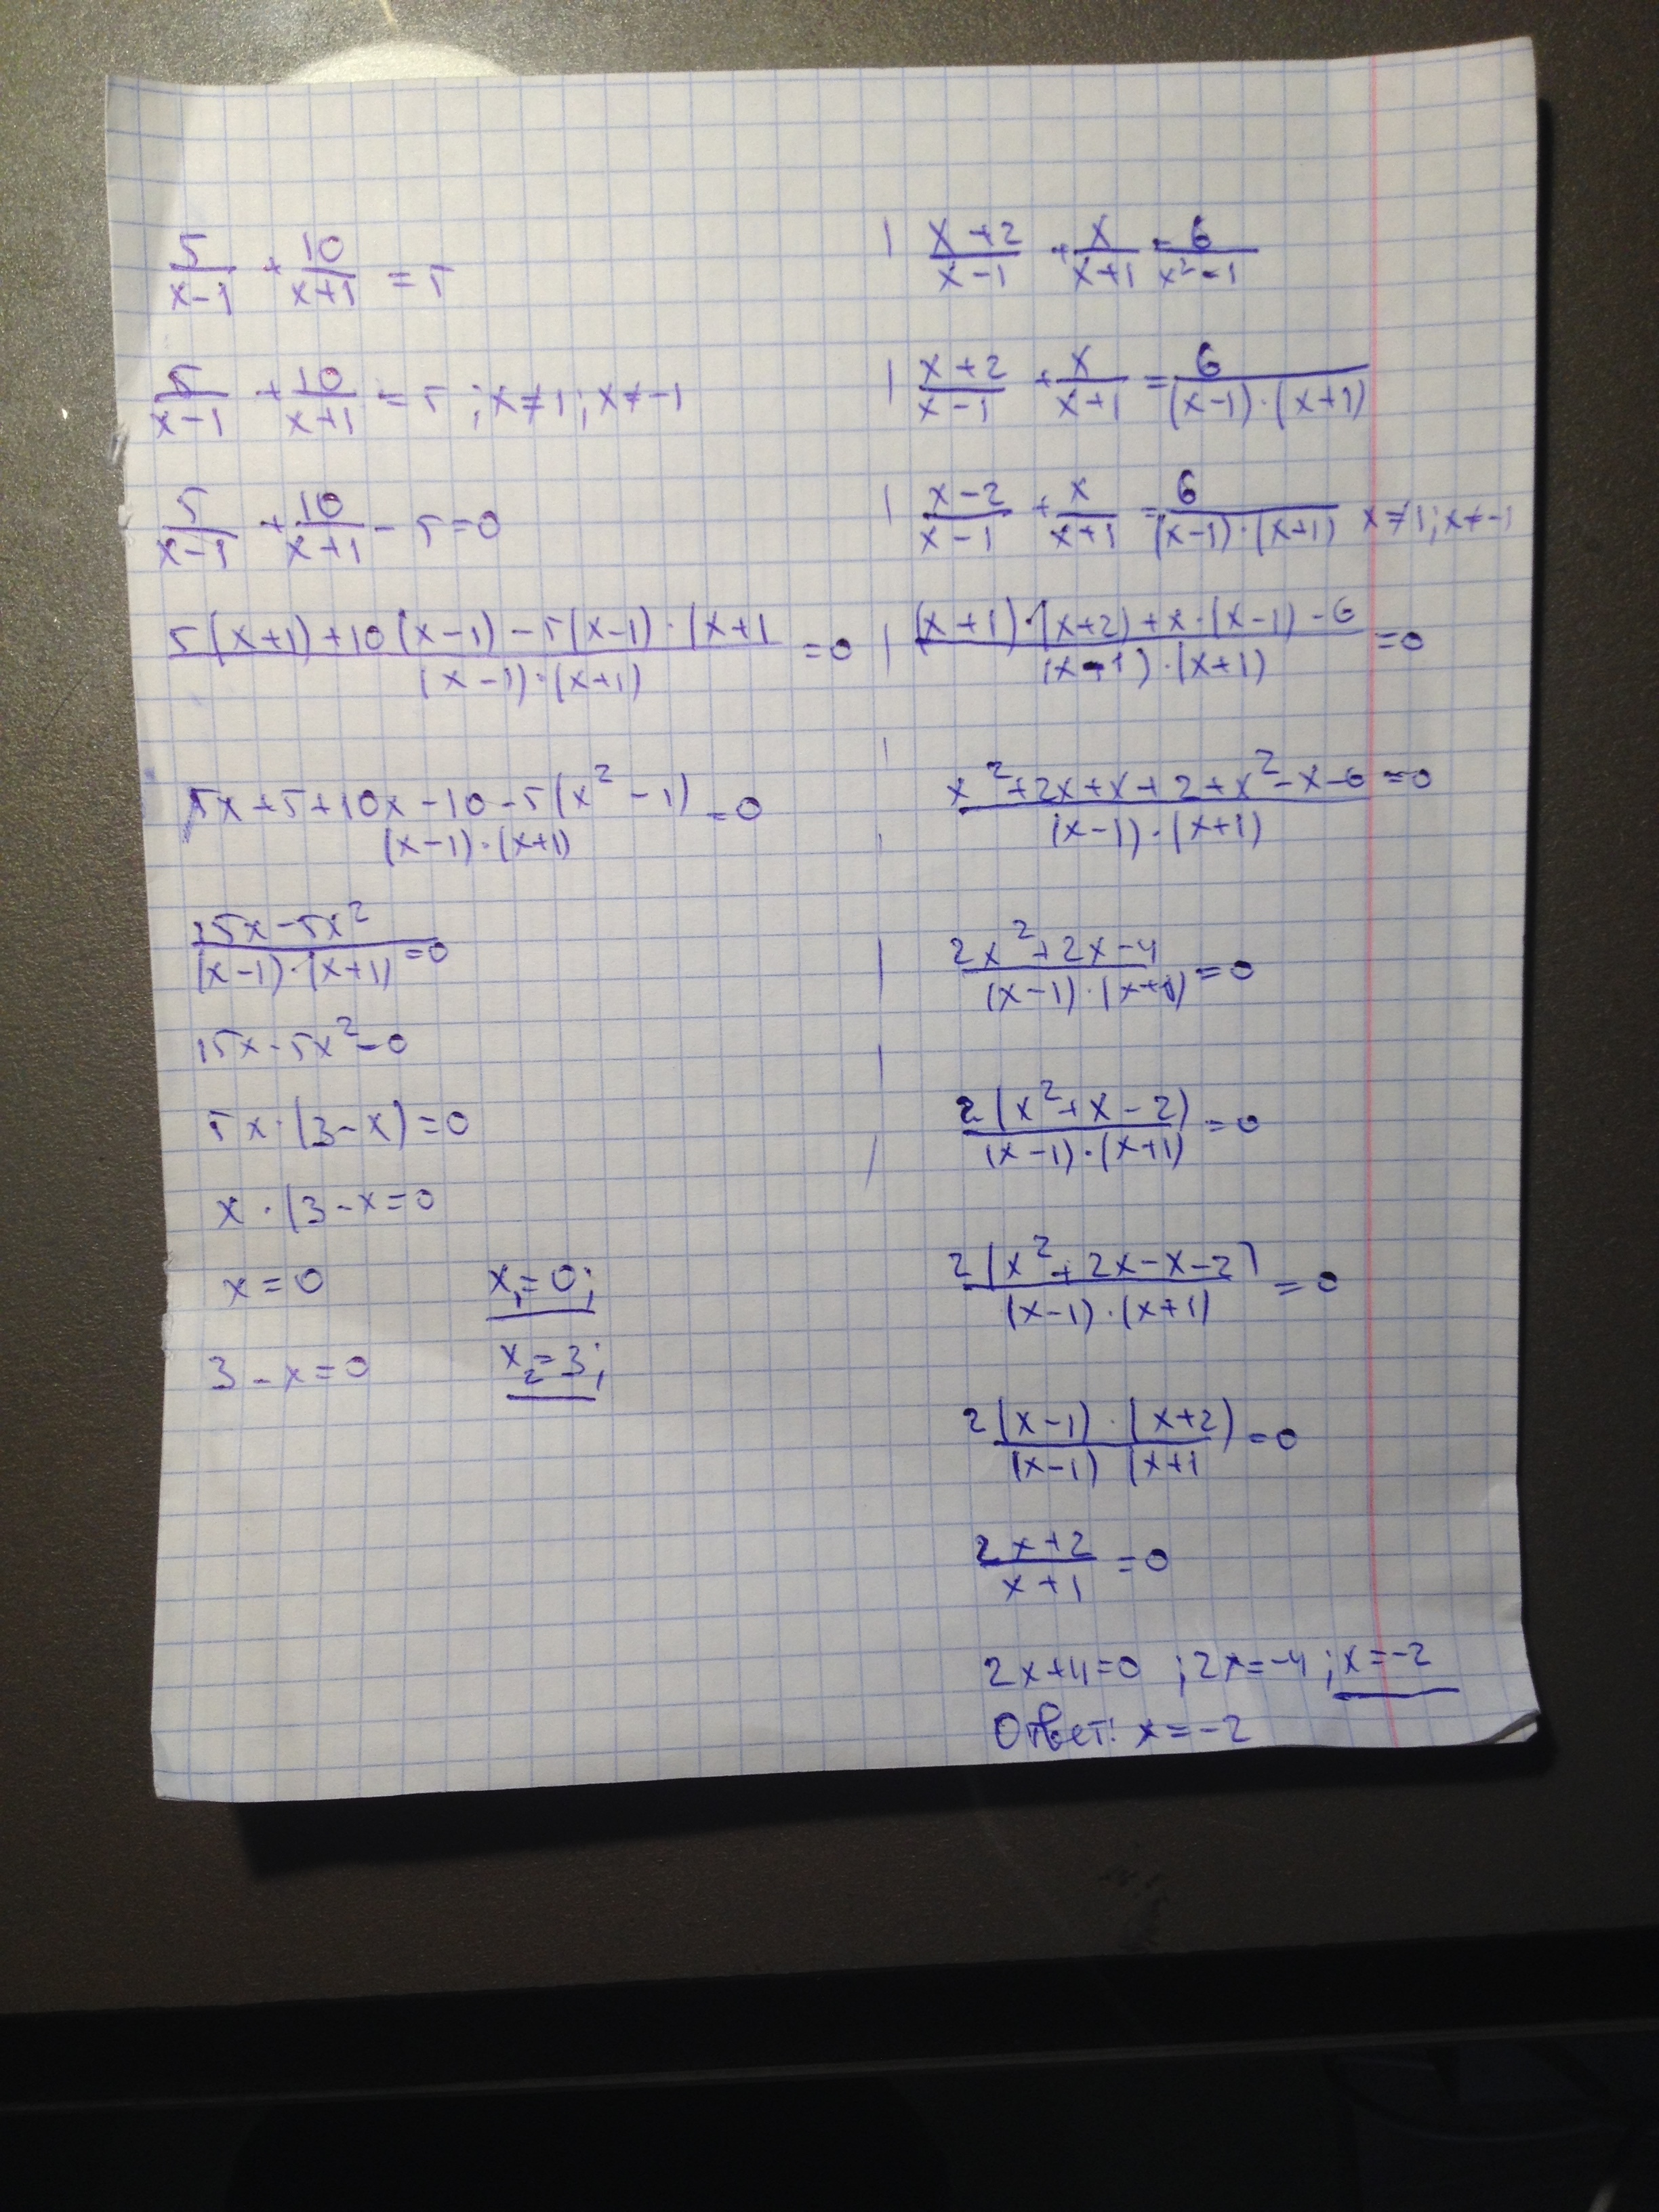 5/(x-1) + 10/(x+1) = 5
5/(x-1) + 10/(x+1) = 5 ; x≠1 ; x≠-1
5/(x-1) + 10/(x+1) - 5 = 0
(5(x+1)+10(x-1)-5(x-1)·(x+1)/((x-1)·(x+1)) = 0
5x+5+10x-10-5(x²-1)/((x-1)·(x+1)) = 0
(15x-5x²)/((x-1)·(x+1)) = 0
15x-5x²=0
5x·(3-x)=0
x·(3-x=0
x=0 x₁=0;
3-x=0 x₂=3;
(x+2)/(x-1) + x/(x+1) = 6/(x²-1)
(x+2)/(x-1) + x/(x+1) = 6/((x-1)·(x+1))
(x-2)/(x-1) + x/(x+1) = 6/((x-1)·(x+1)) x≠1; x≠-1
((x+1)·(x+2)+x·(x-1)-6)/((x-1)·(x+1)) = 0
(x²+2x+x+2+x²-x-6)/((x-1)·(x+1)) = 0
(2x²+2x-4)/((x-1)·(x+1)) = 0
2(x²+x-2)/((x-1)·(x+1)) = 0
2(x²+2x-x-2)/((x-1)·(x+1)) = 0
2(x-1)·(x+2)/((x-1) (x+1) = 0
(2x+2)/(x+1) = 0
2x+4=0 ; 2x=-4 ; x=-2
Ответ: x=-2